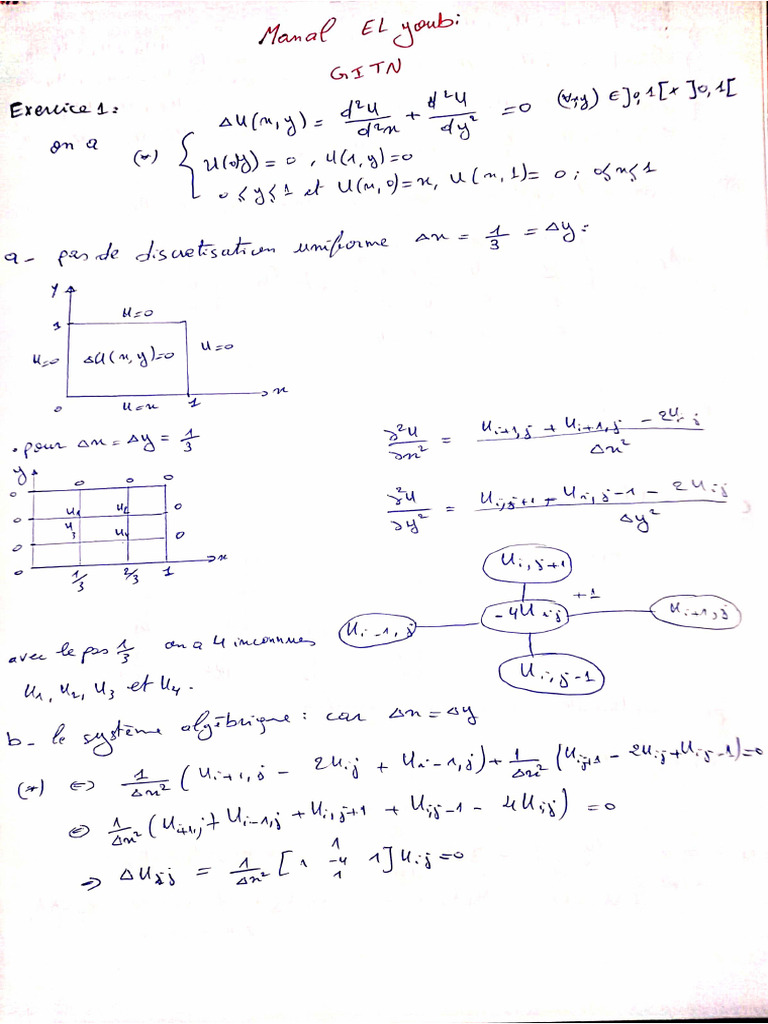 Manal EL youbi
GITN
Exercice 1:
on a (*) { ΔU(x,y) = d²U/d²x + d²U/dy² = 0 (∀x,y) ∈ ]0,1[ x ]0,1[
U(0,y) = 0 , U(1,y) = 0
0 ≤ y ≤ 1 et U(x,0) = x, U(x,1) = 0 ; 0 ≤ x ≤ 1
a - pas de discretisation uniforme Δx = 1/3 = Δy :
y
1 U=0
U=0 ΔU(x,y)=0 U=0
0 U=x 1 x
• pour Δx = Δy = 1/3
∂²U/∂x² = (U i+1,j + U i+1,j - 2U i j)/Δx²
y
0 0 0 0
U1 U2 0
0 U3 U4 0
0
0 1/3 2/3 1 x
∂²U/∂y² = (U i,j+1 + U i,j-1 - 2U ij)/Δy²
U i,j+1
+1
U i-1,j -4U ij U i+1,j
U i,j-1
avec le pas 1/3 on a 4 inconnues
U1, U2, U3 et U4.
b - le système algébrique : car Δx = Δy
(*) ⇔ 1/Δx² (U i+1,j - 2U ij + U i-1,j) + 1/Δx² (U ij+1 - 2U ij + U ij-1) = 0
⇔ 1/Δx² (U i+1,j + U i-1,j + U i,j+1 + U i,j-1 - 4U ij) = 0
⇒ ΔU ij = 1/Δx² [1 1 -4 1 1] U ij = 0